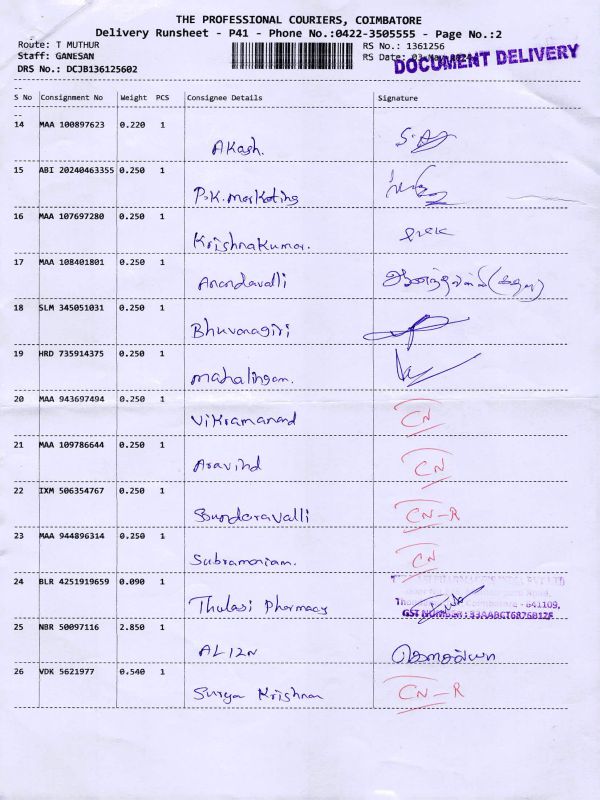 THE PROFESSIONAL COURIERS, COIMBATORE
Delivery Runsheet - P41 - Phone No.:0422-3505555 - Page No.:2
Route: T MUTHUR RS No.: 1361256
Staff: GANESAN RS Date:
DRS No.: DCJB136125602
DOCUMENT DELIVERY
S No Consignment No Weight PCS Consignee Details Signature
14 MAA 100897623 0.220 1
Akash.
15 ABI 20240463355 0.250 1
P.K. Marketing
16 MAA 107697280 0.250 1
Krishnakumar.
17 MAA 108401801 0.250 1
Anandavalli
18 SLM 345051031 0.250 1
Bhuvanagiri
19 HRD 735914375 0.250 1
Mahalingam.
20 MAA 943697494 0.250 1
Vikramanand CN
21 MAA 109786644 0.250 1
Aravind CN
22 IXM 506354767 0.250 1
Sundaravalli CN-R
23 MAA 944896314 0.250 1
Subramaniam. CN
24 BLR 4251919659 0.090 1
Thulasi Pharmacy
Coimbatore - 641109,
GST NUMBER: 33AABCT6876B1ZF
25 NBR 50097116 2.850 1
26 VDK 5621977 0.540 1
Surya Krishnan CN-R